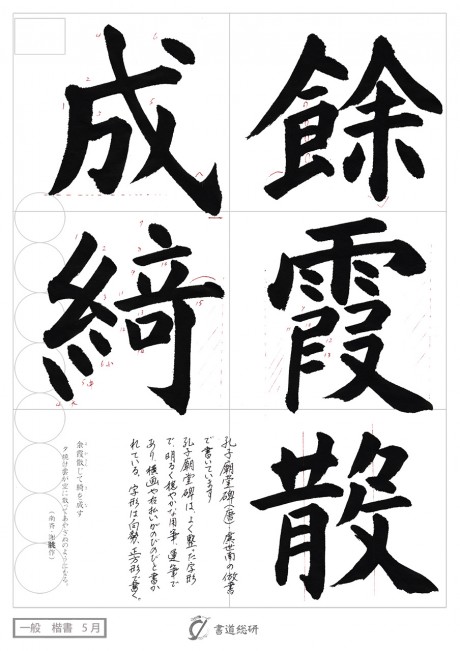 餘霞散
成綺
孔子廟堂碑(唐)虞世南の倣書
で書いています
孔子廟堂碑は、よく整った字形
で、明るく穏やかな用筆、運筆で
あり、横画や右払いがのびのびと書か
れている。字形は向勢、正方形で書く。
余霞散じて綺を成す
夕焼け雲が空に散ってあやぎぬのようになる。
(南斉 謝朓作)
一般 楷書 5月
書道総研